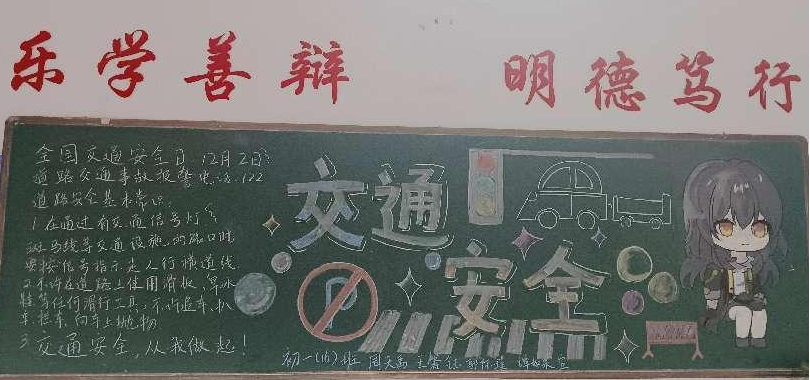 乐学善辩 明德笃行
全国交通安全日 12月2日
道路交通事故报警电话:122
道路安全基本常识:
1.在通过有交通信号灯、
斑马线等交通设施的路口时
要按信号指示走人行横道线
2.不许在道路上使用滑板、旱冰
鞋等任何滑行工具,不许追车、扒
车、拦车、向车上抛物
3.交通安全,从我做起!
交通
安全
P
初一(16)班